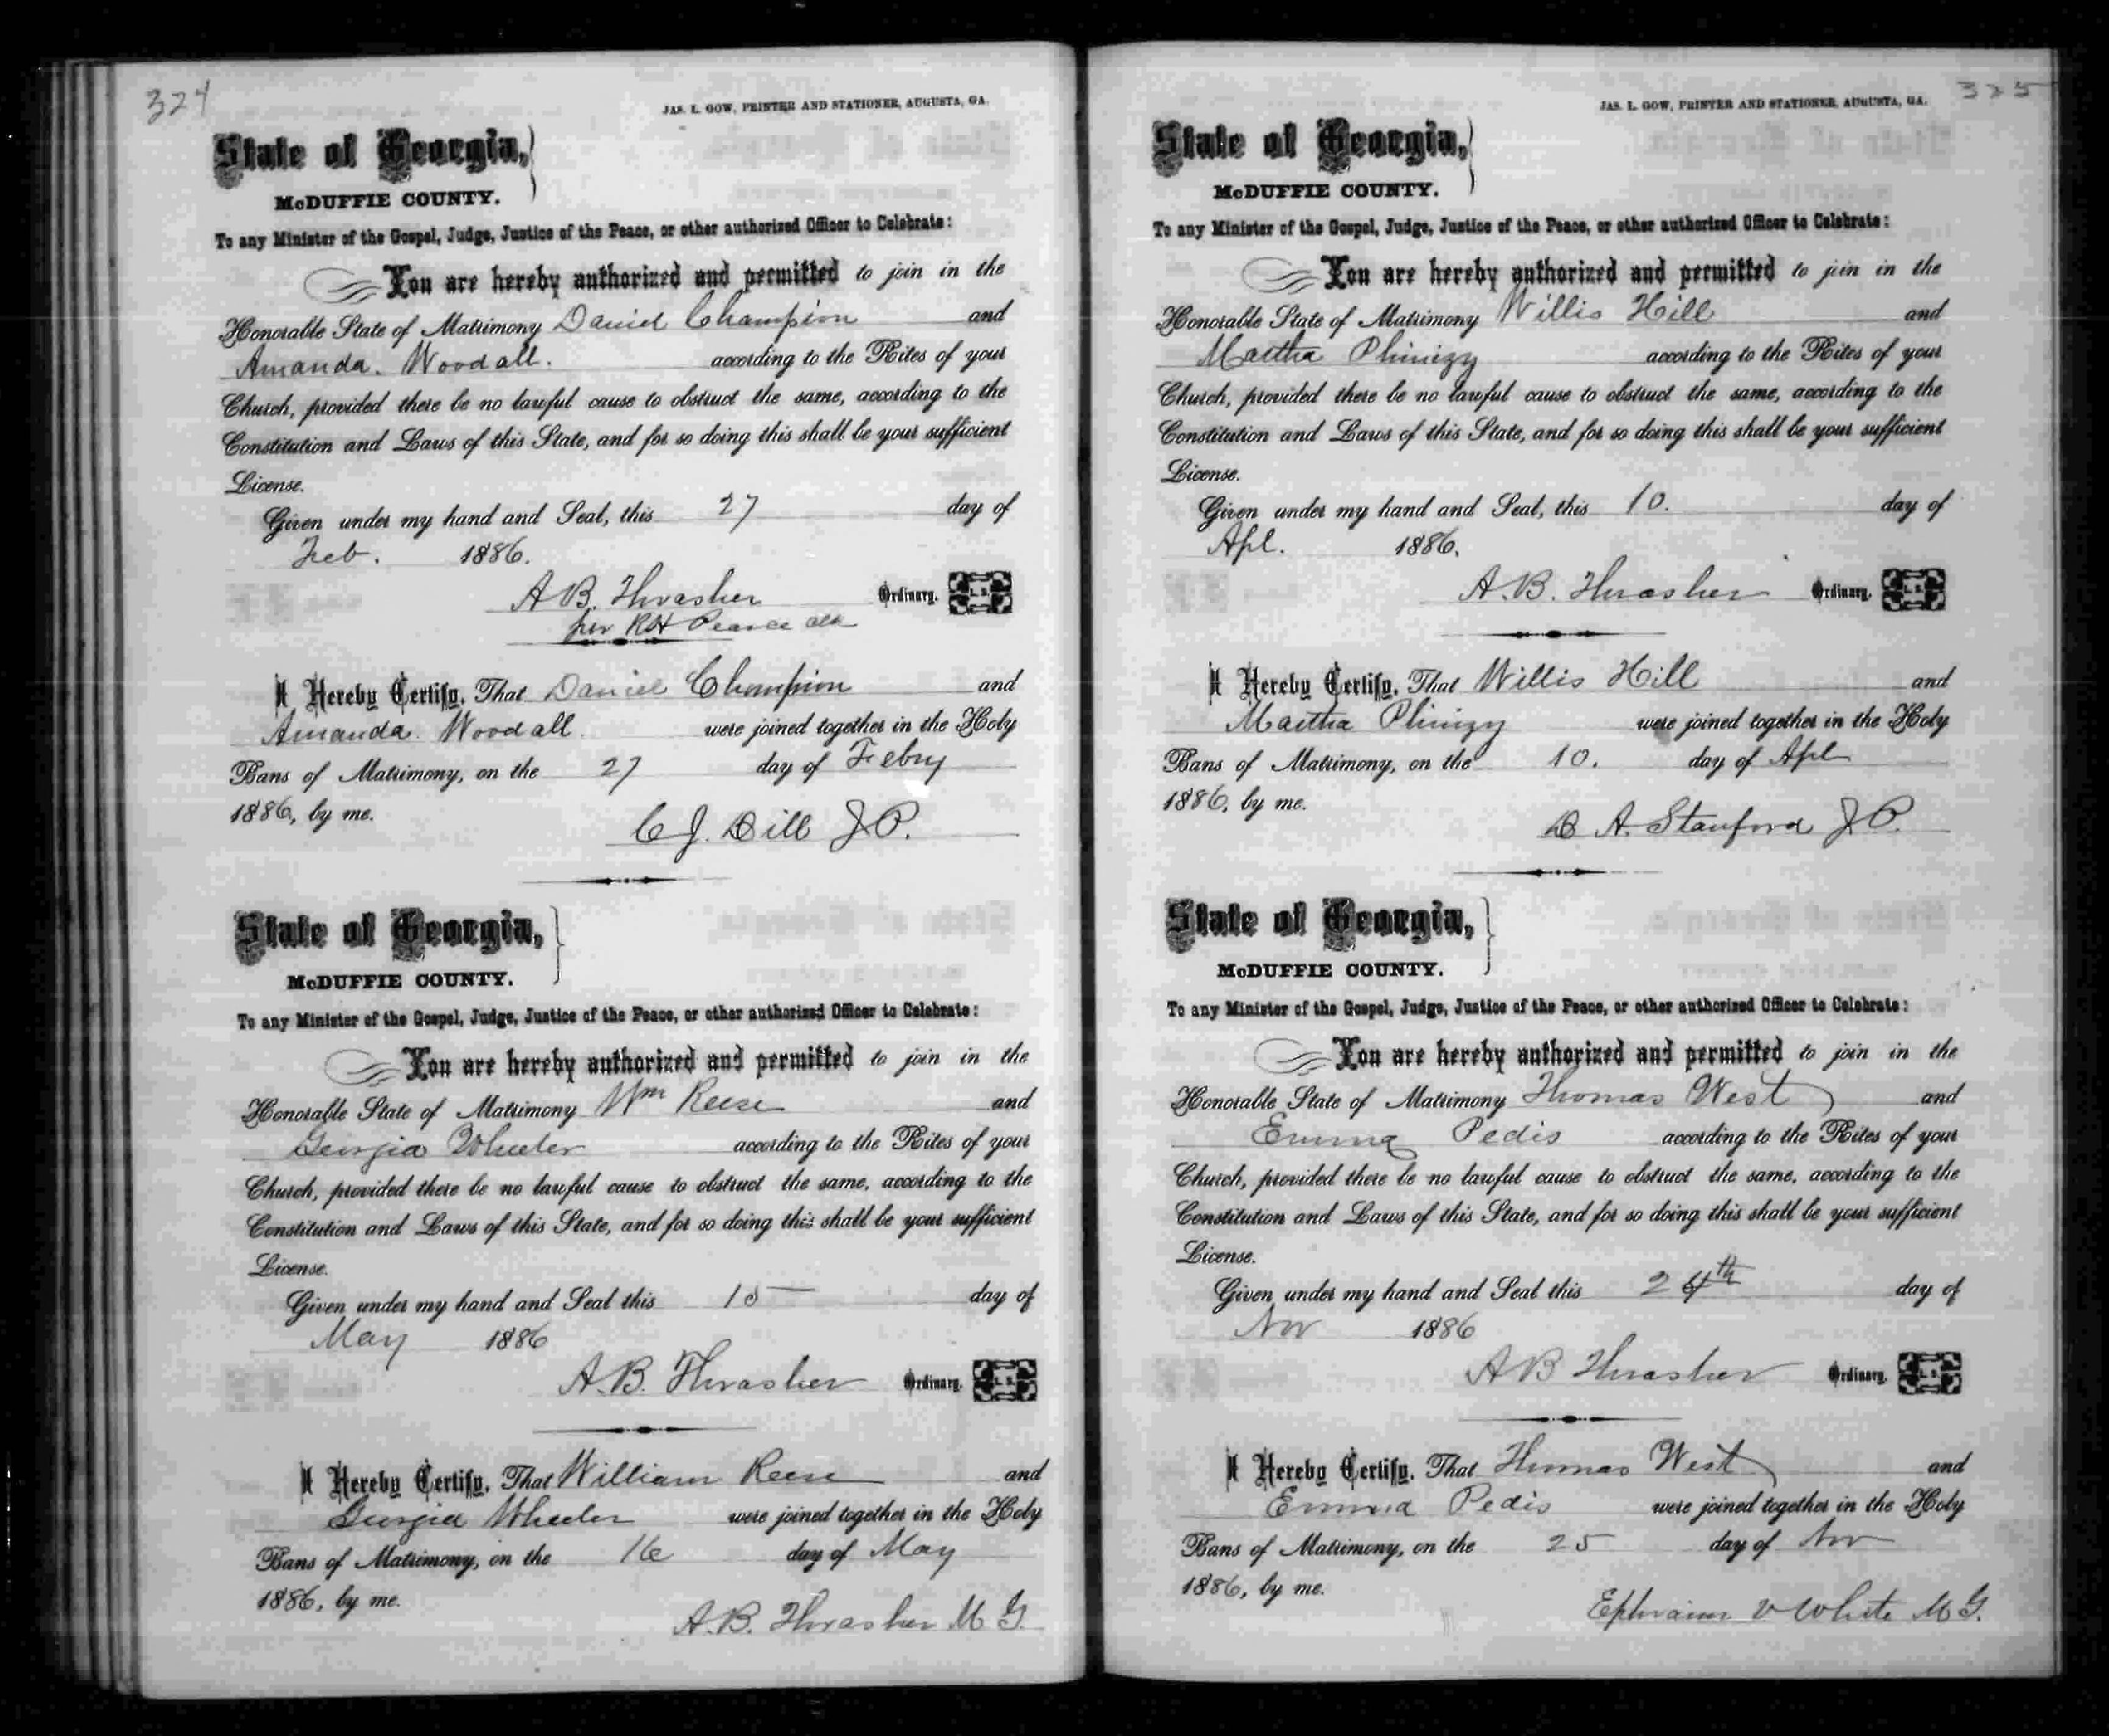 324
JAS. L. GOW, PRINTER AND STATIONER, AUGUSTA, GA.
State of Georgia,
McDUFFIE COUNTY.
To any Minister of the Gospel, Judge, Justice of the Peace, or other authorized Officer to Celebrate:
You are hereby authorized and permitted to join in the
Honorable State of Matrimony Daniel Champion and
Amanda. Woodall. according to the Rites of your
Church, provided there be no lawful cause to obstruct the same, according to the
Constitution and Laws of this State, and for so doing this shall be your sufficient
License.
Given under my hand and Seal, this 27 day of
Feb. 1886.
A B. Thrasher Ordinary. L. S.
per RH Pearce
I Hereby Certify, That Daniel Champion and
Amanda. Woodall were joined together in the Holy
Bans of Matrimony, on the 27 day of Febry
1886, by me.
C J. Dill J P.
State of Georgia,
McDUFFIE COUNTY.
To any Minister of the Gospel, Judge, Justice of the Peace, or other authorized Officer to Celebrate:
You are hereby authorized and permitted to join in the
Honorable State of Matrimony Wm Reese and
Georgia Wheeler according to the Rites of your
Church, provided there be no lawful cause to obstruct the same, according to the
Constitution and Laws of this State, and for so doing this shall be your sufficient
License.
Given under my hand and Seal this 15 day of
May 1886
A. B. Thrasher Ordinary. L. S.
I Hereby Certify, That William Reese and
Georgia Wheeler were joined together in the Holy
Bans of Matrimony, on the 16 day of May
1886, by me.
A. B. Thrasher M G.
325
JAS. L. GOW, PRINTER AND STATIONER, AUGUSTA, GA.
State of Georgia,
McDUFFIE COUNTY.
To any Minister of the Gospel, Judge, Justice of the Peace, or other authorized Officer to Celebrate:
You are hereby authorized and permitted to join in the
Honorable State of Matrimony Willis Hill and
Martha Phinizy according to the Rites of your
Church, provided there be no lawful cause to obstruct the same, according to the
Constitution and Laws of this State, and for so doing this shall be your sufficient
License.
Given under my hand and Seal, this 10. day of
Apl. 1886.
A. B. Thrasher Ordinary. L. S.
I Hereby Certify, That Willis Hill and
Martha Phinizy were joined together in the Holy
Bans of Matrimony, on the 10. day of Apl
1886, by me.
B A. Stanford J P.
State of Georgia,
McDUFFIE COUNTY.
To any Minister of the Gospel, Judge, Justice of the Peace, or other authorized Officer to Celebrate:
You are hereby authorized and permitted to join in the
Honorable State of Matrimony Thomas West and
Emma Pedis according to the Rites of your
Church, provided there be no lawful cause to obstruct the same, according to the
Constitution and Laws of this State, and for so doing this shall be your sufficient
License.
Given under my hand and Seal this 24th day of
Nov 1886
A B Thrasher Ordinary. L. S.
I Hereby Certify, That Thomas West and
Emma Pedis were joined together in the Holy
Bans of Matrimony, on the 25 day of Nov
1886, by me.
Ephraim V White M G.